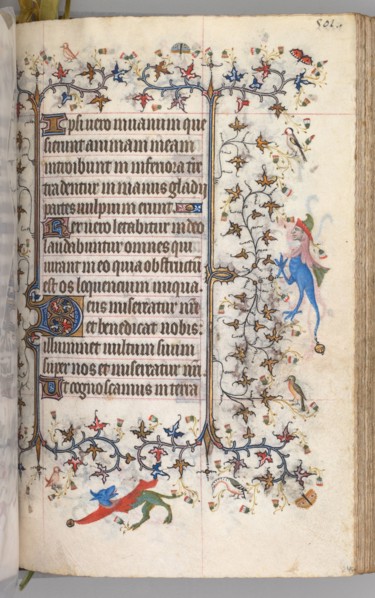 Ipsi vero in vanum que
sierunt animam meam
introibunt in inferiora tr̃e
tradentur in manus gladii
partes vulpium erunt.
Rex vero letabitur in deo
laudabuntur omnes qui
iurant in eo quia obstructũ
est os loquentium iniqua.
Deus misereatur nr̃i
et benedicat nobis:
illuminet vultum suum
super nos et misereatur nr̃i.
Ut cognoscamus in terra